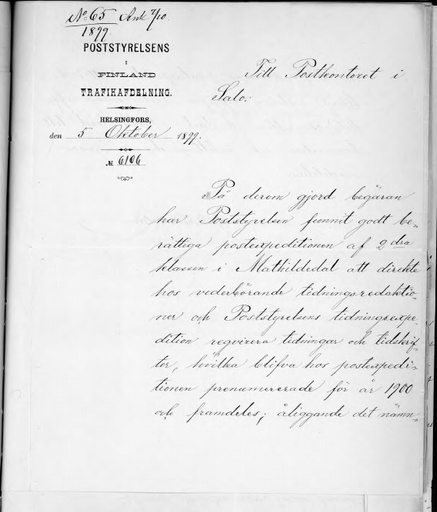 No 65 Ank 7/10.
1899
POSTSTYRELSENS
I
FINLAND
TRAFIKAFDELNING.
HELSINGFORS,
den 5 Oktober 1899.
№ 6106
Till Postkontoret i
Salo.
På derom gjord begäran
har Poststyrelsen funnit godt be-
rättiga postexpeditionen af 2dra
klassen i Mathildedal att direkte
hos vederbörande tidningsredaktio-
ner och Poststyrelsens tidningsexpe-
dition reqvirera tidningar och tidskrif-
ter, hvilka blifva hos postexpedi-
tionen prenumererade för år 1900
och framdeles; åliggande det nämn-